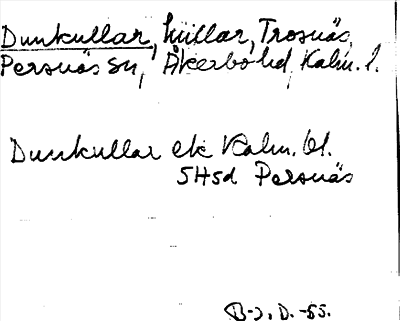 Dunkullar, kullar, Trosnäs,
Persnäs sn, Åkerbo hd, Kalm. l.
Dunkullar ek Kalm. bl.
5H5d Persnäs
B-J. D. -55.